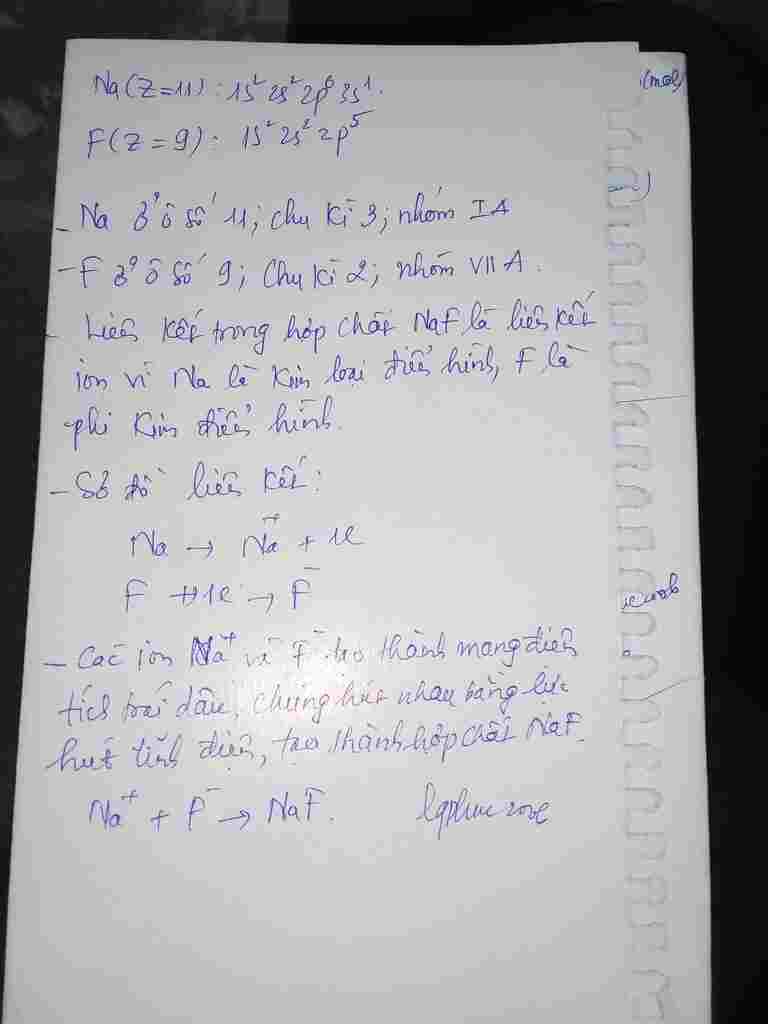 Na(Z=11): 1s² 2s² 2p⁶ 3s¹.
F(Z=9): 1s² 2s² 2p⁵
(mol)
- Na ở ô số 11; chu kì 3; nhóm IA
- F ở ô số 9; Chu kì 2; nhóm VIIA.
- Liên kết trong hợp chất NaF là liên kết
ion vì Na là kim loại điển hình, F là
phi kim điển hình.
- Sơ đồ liên kết:
Na → Na⁺ + 1e
F + 1e → F⁻
- Các ion Na⁺ và F⁻ tạo thành mang điện
tích trái dấu, chúng hút nhau bằng lực
hút tĩnh điện, tạo thành hợp chất NaF.
Na⁺ + F⁻ → NaF.